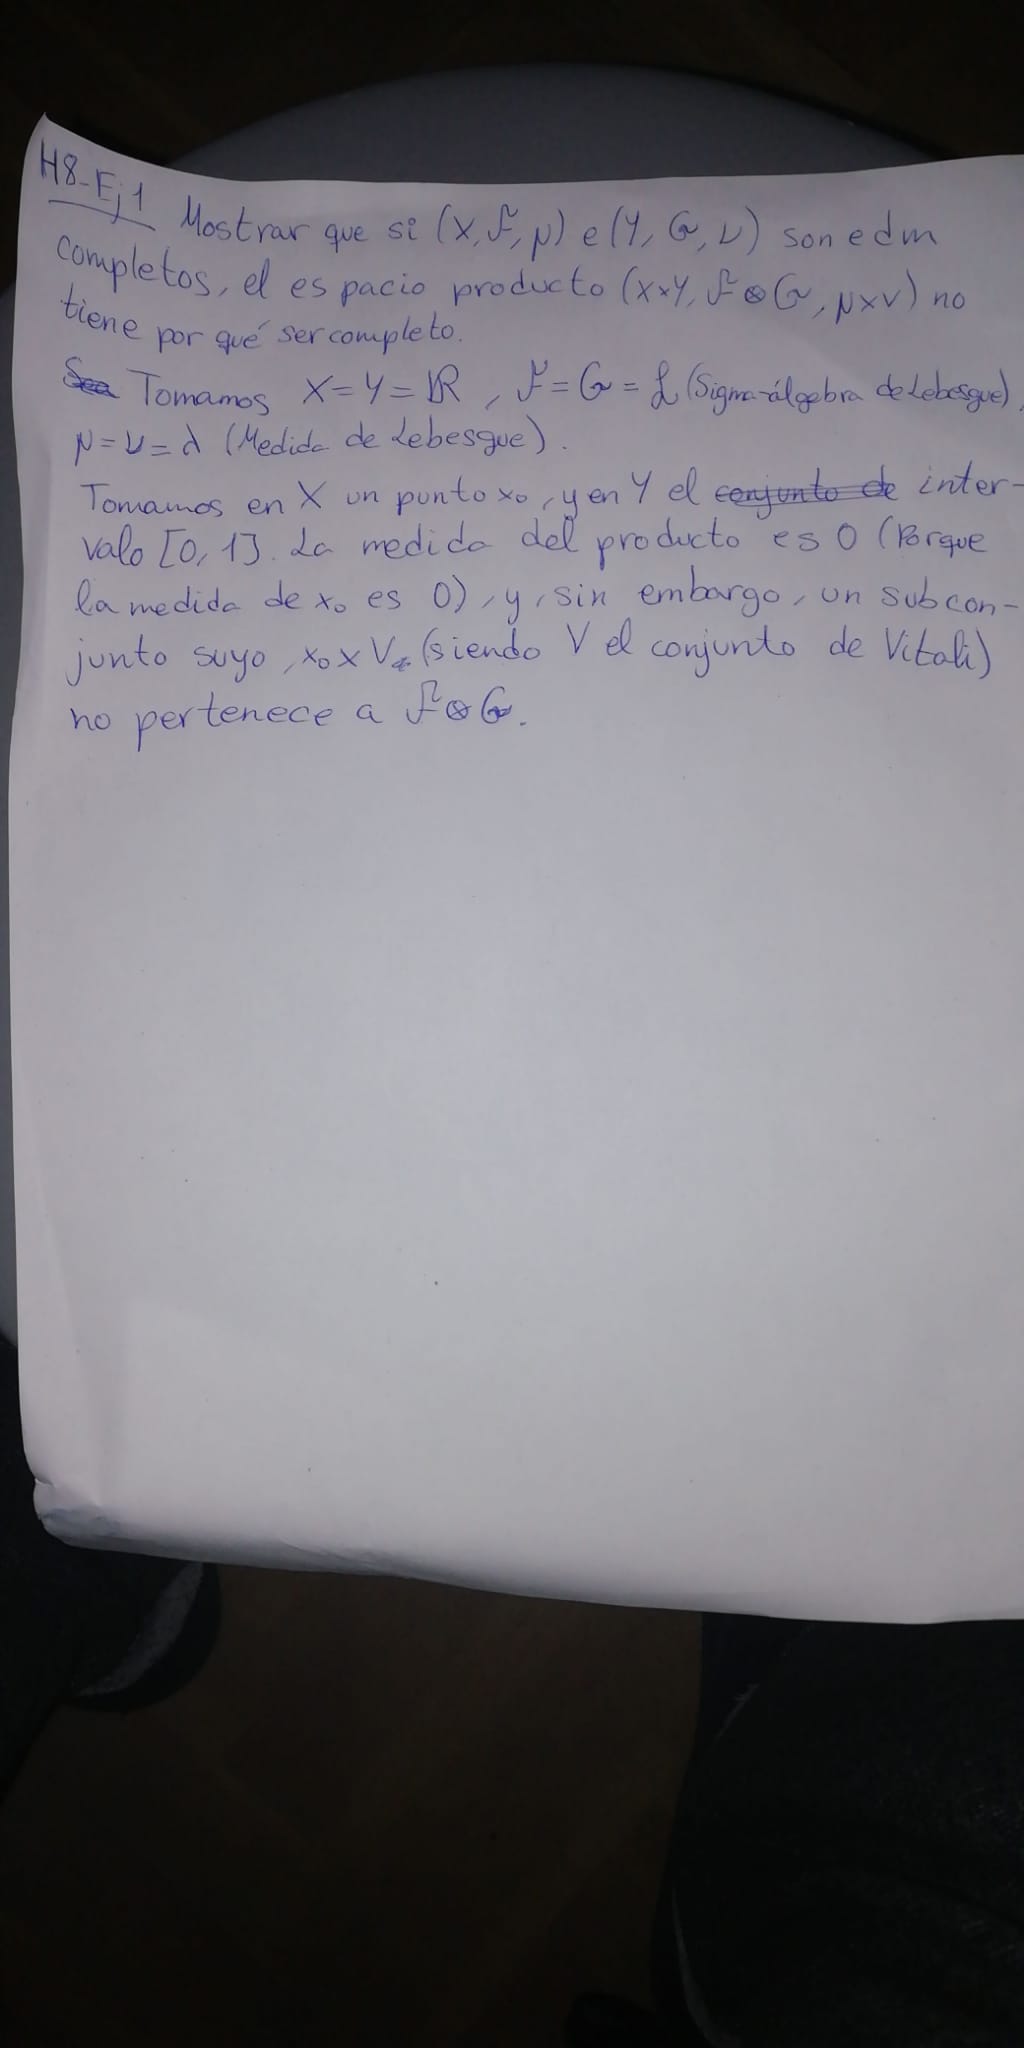 H8-Ej1 Mostrar que si (X, F, μ) e (Y, G, ν) son edm
completos, el espacio producto (X×Y, F⊗G, μ×ν) no
tiene por qué ser completo.
Sea Tomamos X=Y=ℝ, F=G=ℒ (Sigma-álgebra de Lebesgue),
μ=ν=λ (Medida de Lebesgue).
Tomamos en X un punto x₀, y en Y el conjunto de inter-
valo [0,1]. La medida del producto es 0 (Porque
la medida de x₀ es 0), y, sin embargo, un subcon-
junto suyo, x₀×V, (siendo V el conjunto de Vitali)
no pertenece a F⊗G.